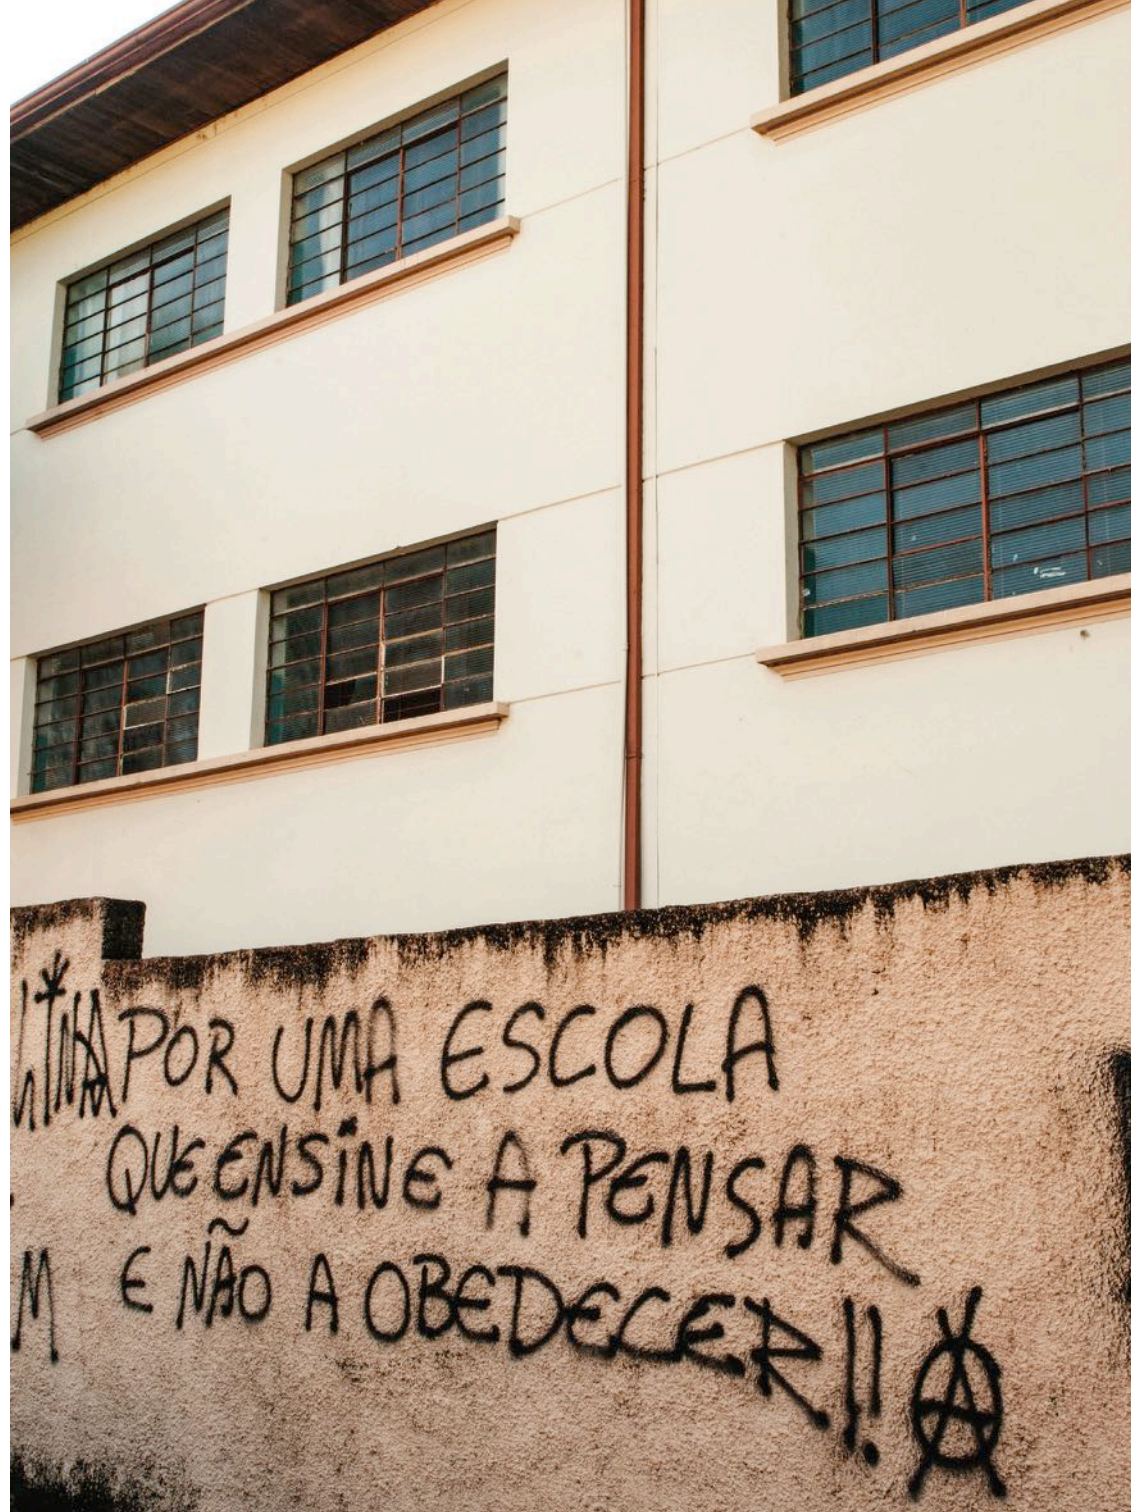 POR UMA ESCOLA
QUE ENSINE A PENSAR
E NÃO A OBEDECER!!